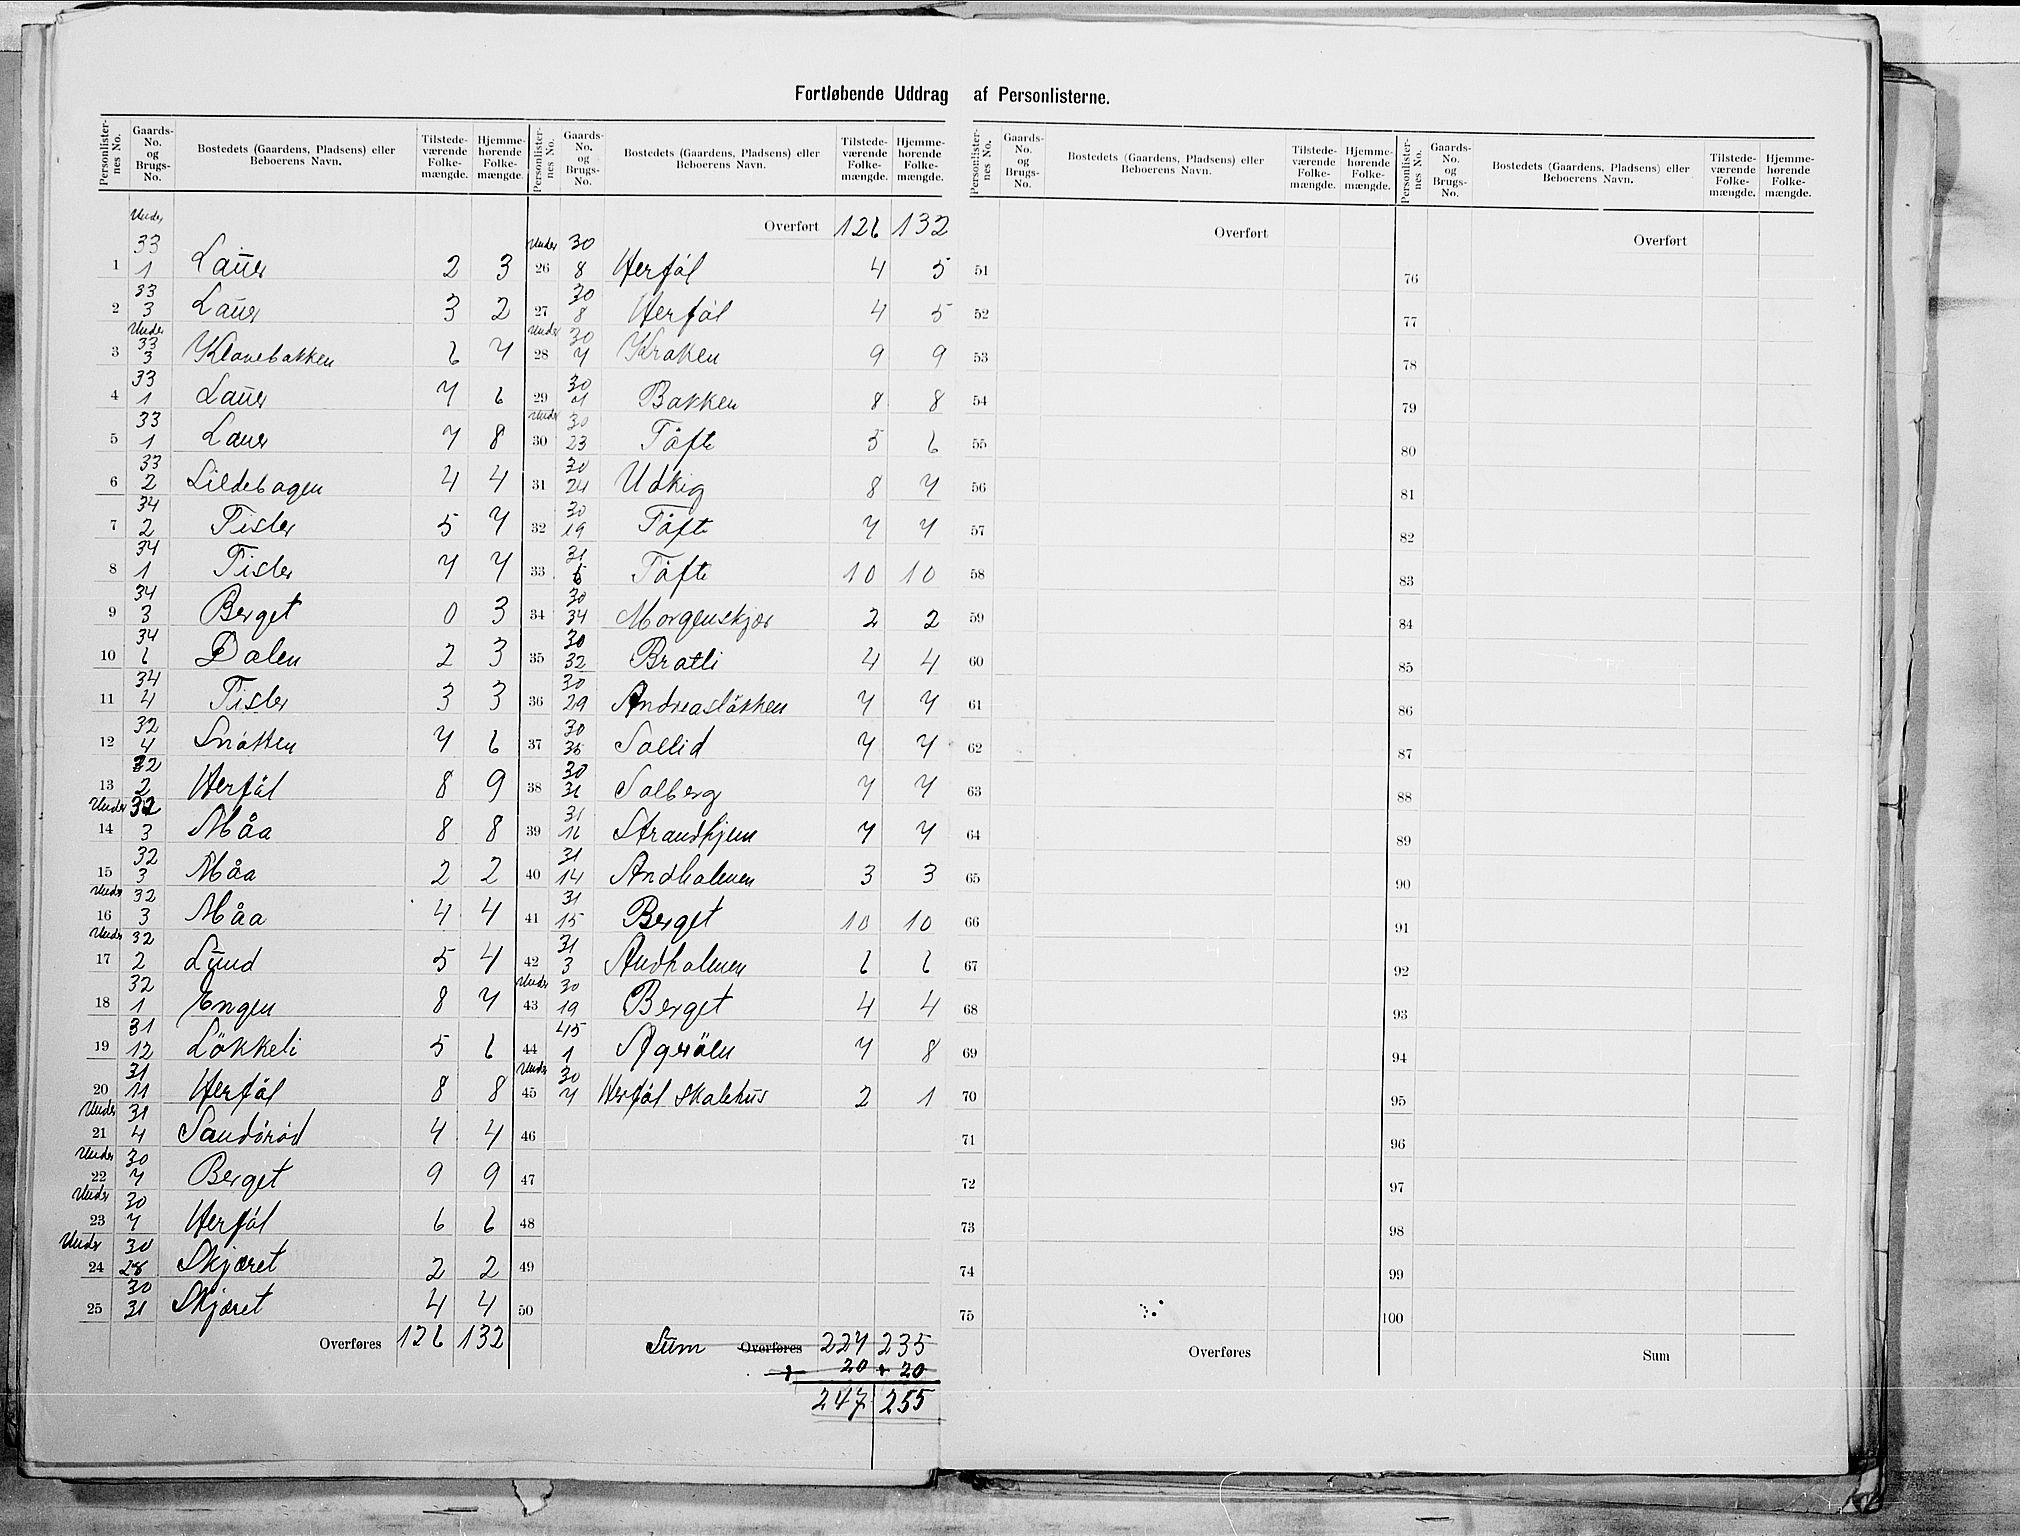 Fortløbende Uddrag af Personlisterne.
Personlister-nes No. Gaards-No. og Brugs-No. Bostedets (Gaardens, Pladsens) eller Beboerens Navn. Tilstede-værende Folke-mængde. Hjemme-hørende Folke-mængde.
Under
1 33/1 Lauer 2 3
2 33/3 Lauer 3 2
3 Under 33/3 Klovebakken 6 7
4 33/1 Lauer 7 6
5 33/1 Lauer 7 8
6 33/2 Sildebogen 4 4
7 34/2 Tisler 5 7
8 34/1 Tisler 7 7
9 34/3 Berget 0 3
10 34/6 Dalen 2 3
11 34/4 Tisler 3 3
12 32/4 Snøtten 7 6
13 32/2 Herføl 8 9
14 Under 32/3 Måa 8 8
15 32/3 Måa 2 2
16 Under 32/3 Måa 4 4
17 Under 32/2 Lund 5 4
18 32/1 Engen 8 7
19 31/12 Løkkeli 5 6
20 31/11 Herføl 8 8
21 Under 31/4 Sandørød 4 4
22 Under 30/7 Berget 9 9
23 Under 30/7 Herføl 6 6
24 Under 30/28 Skjæret 2 2
25 30/31 Skjæret 4 4
Overføres 126 132
Personlister-nes No. Gaards-No. og Brugs-No. Bostedets (Gaardens, Pladsens) eller Beboerens Navn. Tilstede-værende Folke-mængde. Hjemme-hørende Folke-mængde.
Overført 126 132
26 Under 30/8 Herføl 4 5
27 30/8 Herføl 4 5
28 Under 30/7 Kroken 9 9
29 30/7 Bakken 8 8
30 Under 30/23 Tøfte 5 6
31 30/24 Udkig 8 7
32 30/19 Tøfte 7 7
33 31/6 Tøfte 10 10
34 30/34 Morgenskjær 2 2
35 30/32 Bratli 4 4
36 30/29 Andreasløkken 7 7
37 30/35 Sollid 7 7
38 30/31 Solberg 7 7
39 31/16 Strandhjem 7 7
40 31/14 Andholmen 3 3
41 31/15 Berget 10 10
42 31/3 Andholmen 6 6
43 Under 30/19 Berget 4 4
44 45/1 Agrøen 7 8
45 Under 30/7 Herføl Skolehus 2 1
46
47
48
49
50
Sum Overføres 227 235
+ 20 + 20
247 255
Personlister-nes No. Gaards-No. og Brugs-No. Bostedets (Gaardens, Pladsens) eller Beboerens Navn. Tilstede-værende Folke-mængde. Hjemme-hørende Folke-mængde.
Overført
51
52
53
54
55
56
57
58
59
60
61
62
63
64
65
66
67
68
69
70
71
72
73
74
75
Overføres
Personlister-nes No. Gaards-No. og Brugs-No. Bostedets (Gaardens, Pladsens) eller Beboerens Navn. Tilstede-værende Folke-mængde. Hjemme-hørende Folke-mængde.
Overført
76
77
78
79
80
81
82
83
84
85
86
87
88
89
90
91
92
93
94
95
96
97
98
99
100
Sum